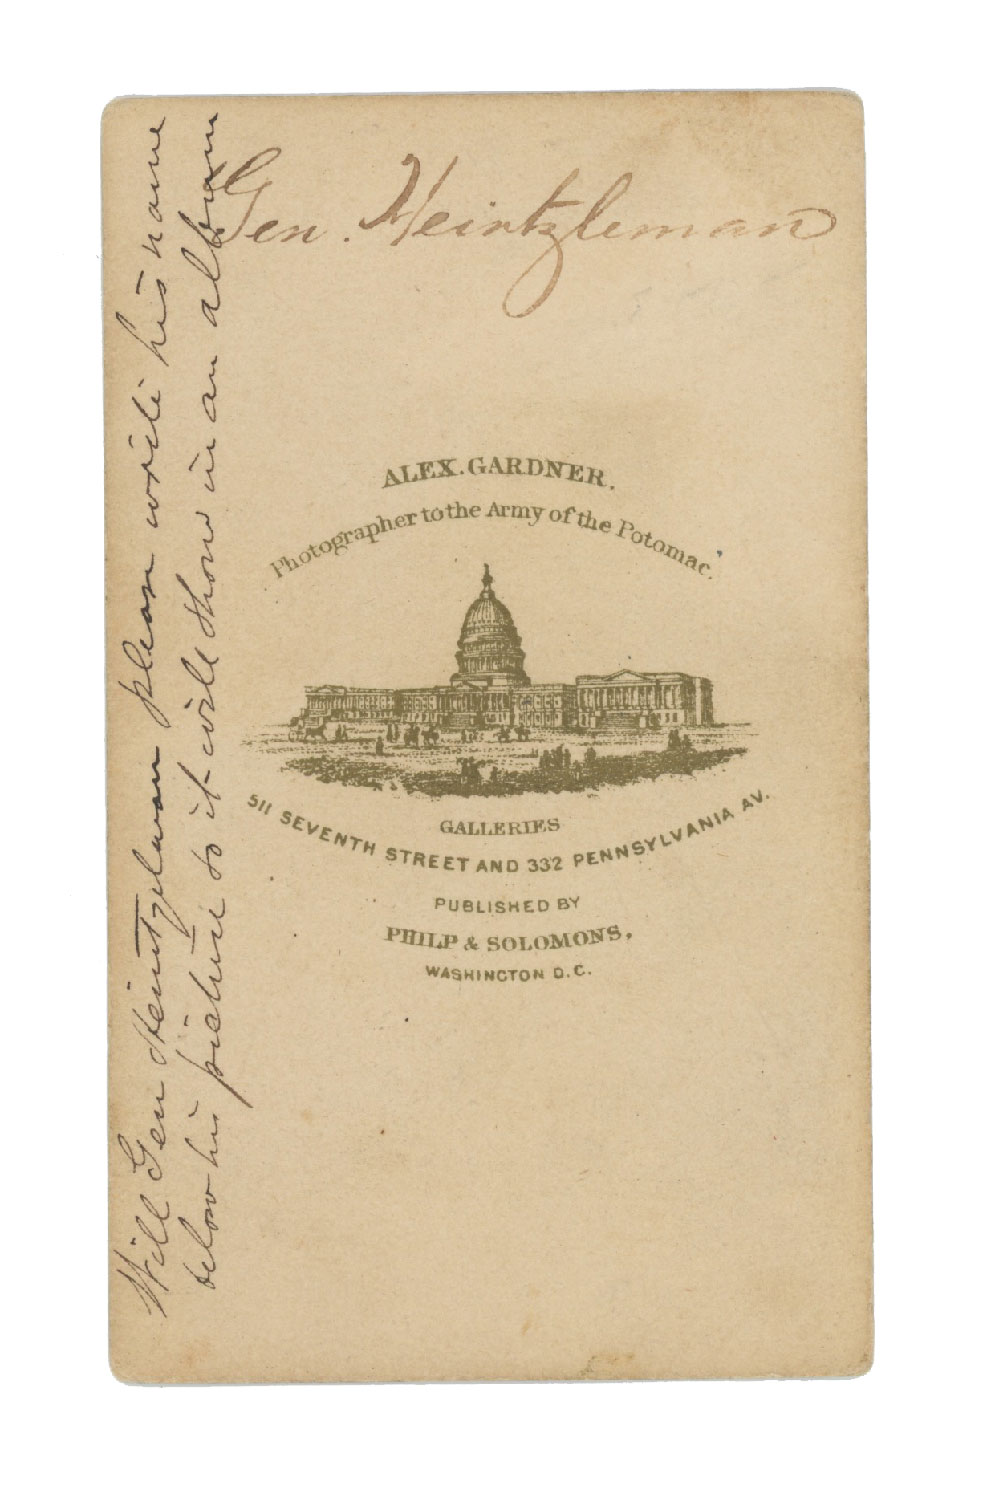 Gen. Heintzleman
Will Gen Heintzleman please write his name
below his picture so it will show in an album
ALEX. GARDNER.
Photographer to the Army of the Potomac.
511 SEVENTH STREET AND 332 PENNSYLVANIA AV.
GALLERIES
PUBLISHED BY
PHILP & SOLOMONS,
WASHINGTON D.C.